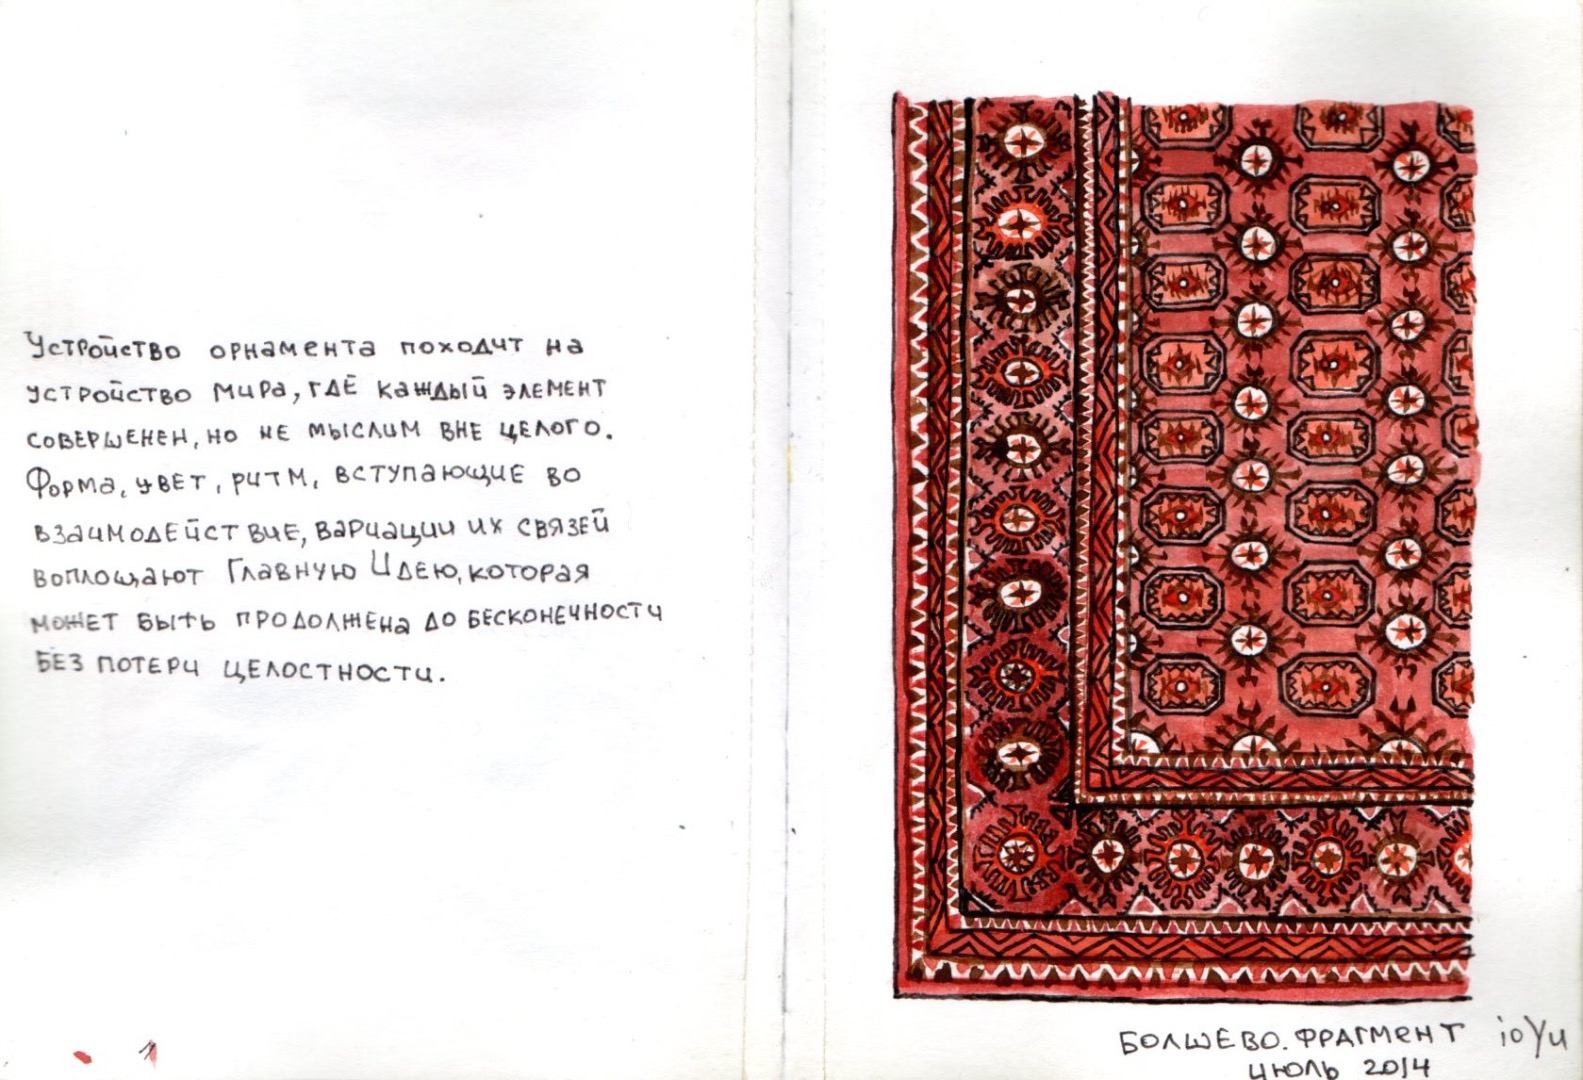 Устройство орнамента походит на
устройство мира, где каждый элемент
совершенен, но не мыслим вне целого.
Форма, цвет, ритм, вступающие во
взаимодействие, вариации их связей
воплощают Главную Идею, которая
может быть продолжена до бесконечности
без потери целостности.
1
Болшево. Фрагмент ioYu
июль 2014